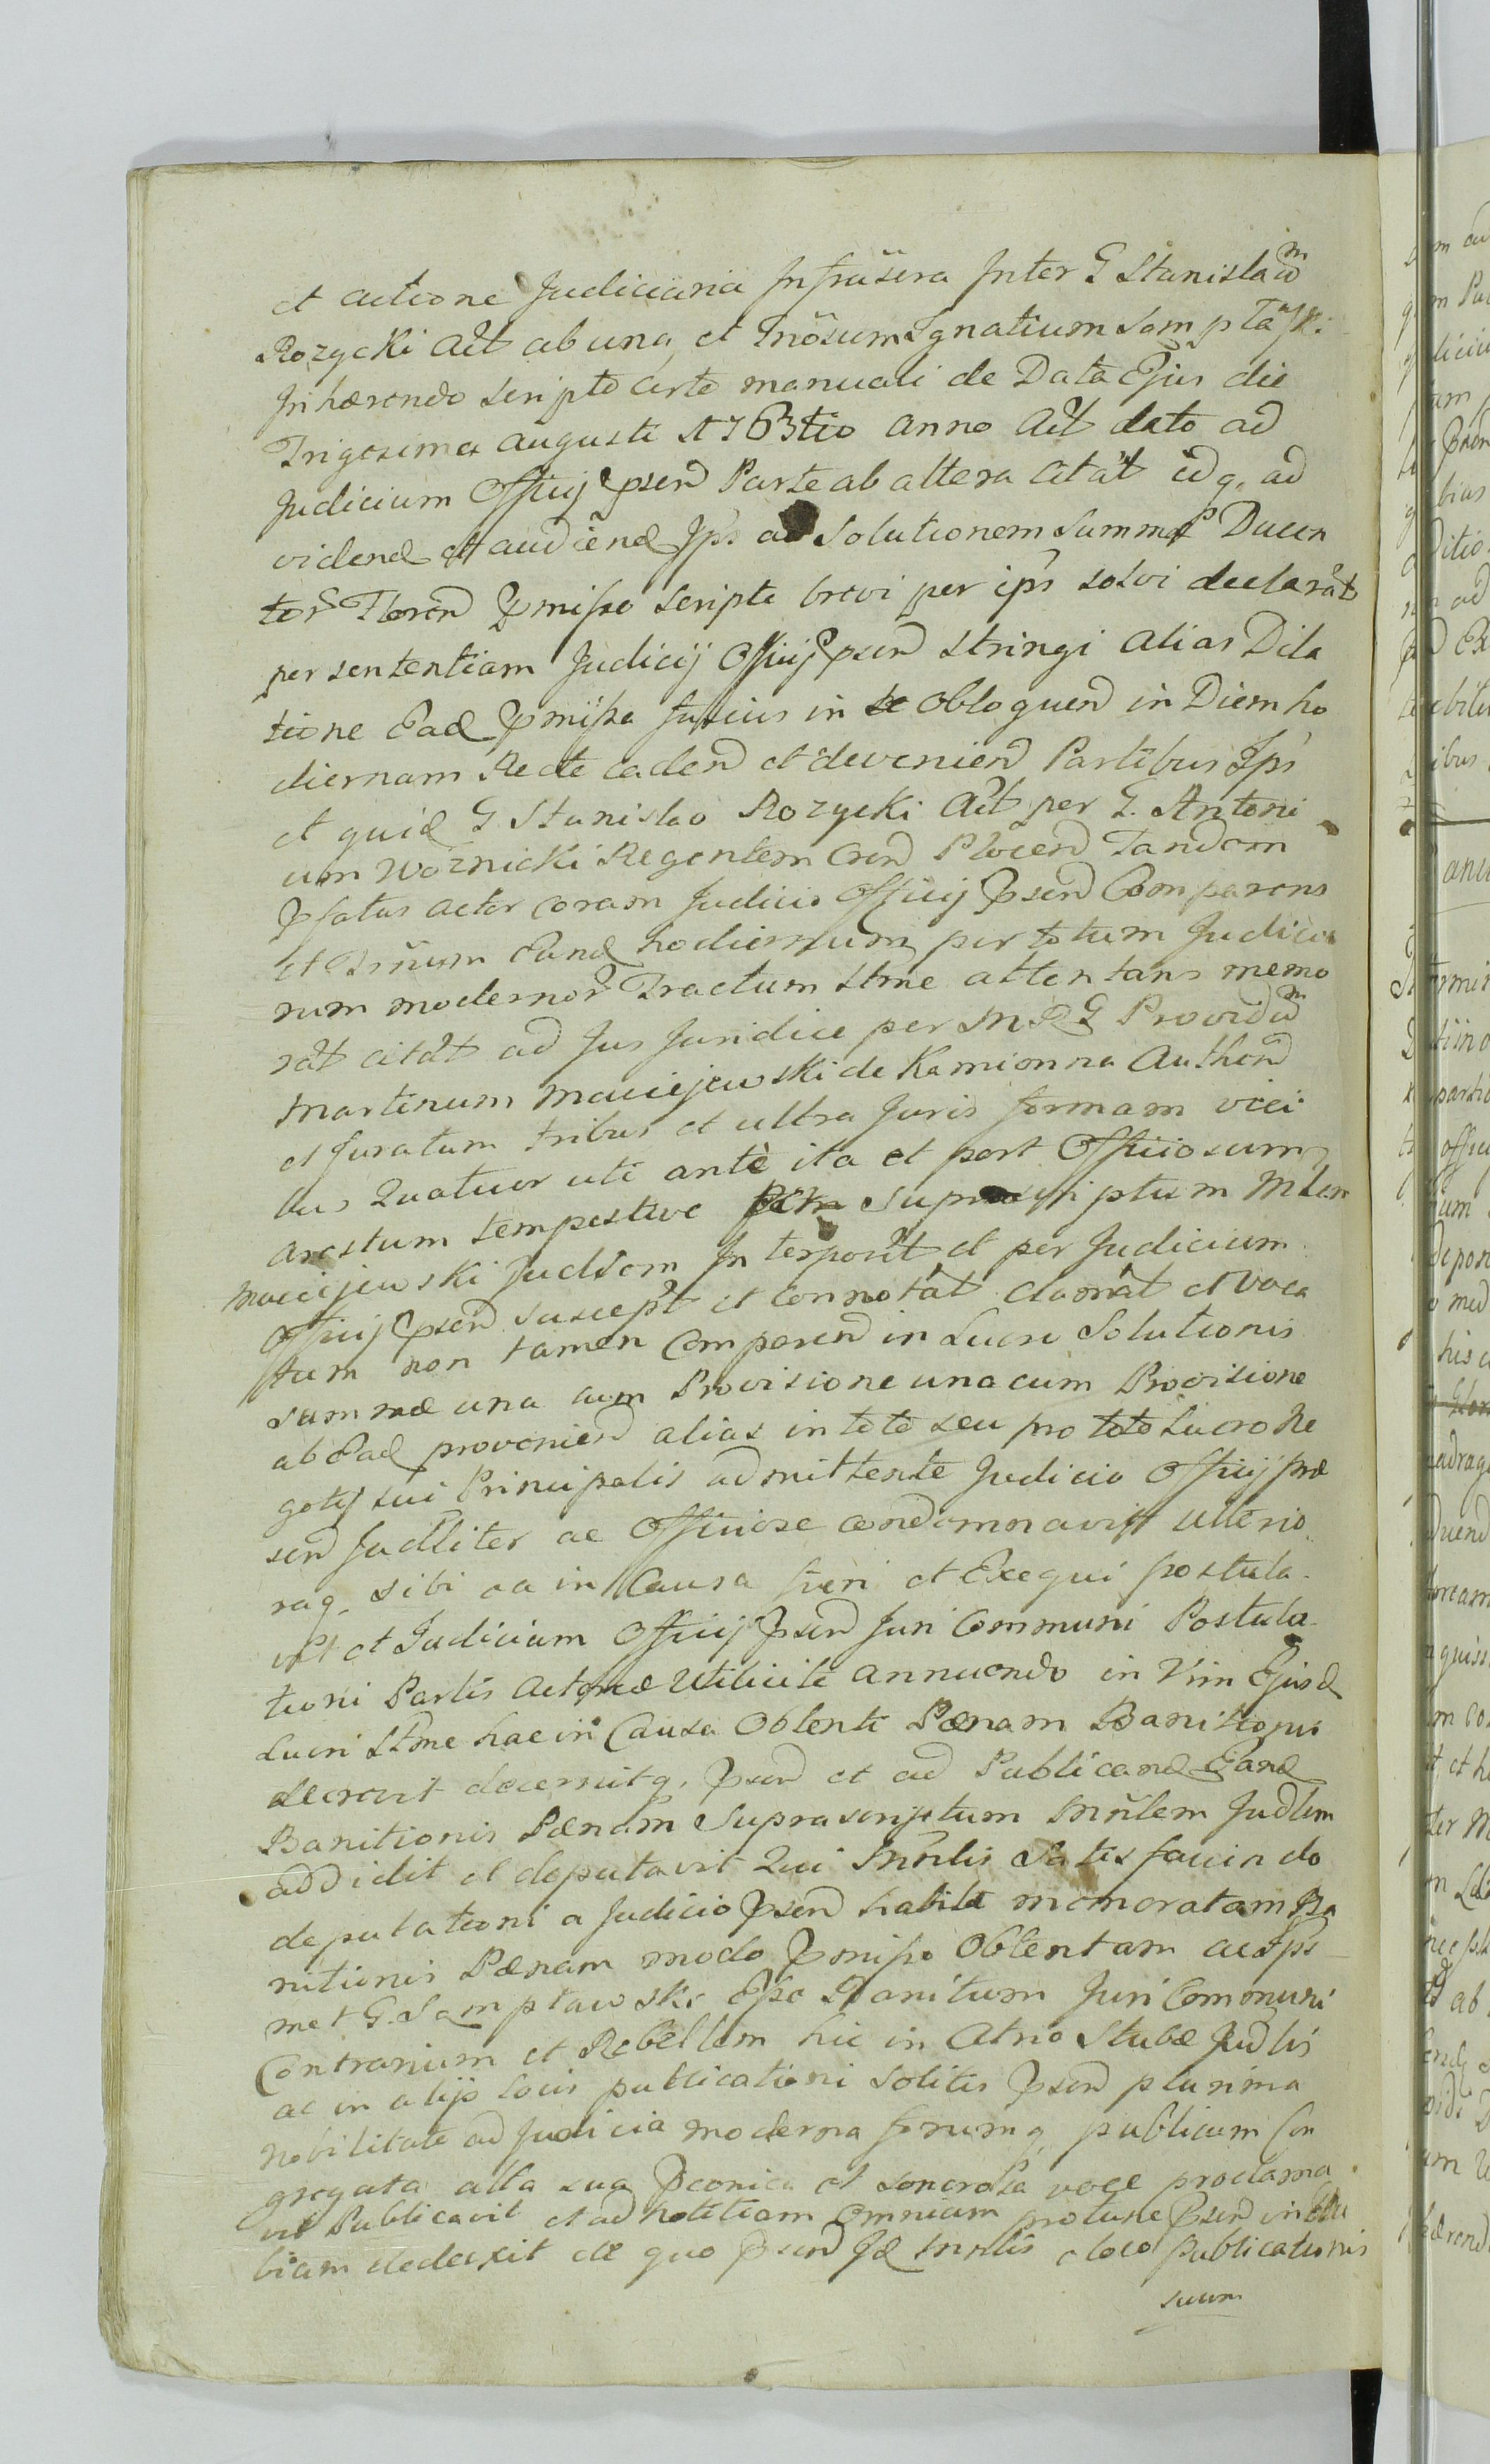 et actione Judiciaria Infrascra Inter G Stanislaum
Rozycki Act ab una, et Gnosum Ignatium Samplawski
Inhærendo scripto certo manuali de Data Ejus die
Trigesima Augusti A 1763tio anno Act dato ad
Judicium Officij Psen Parte ab altera citat idq, ad
vidend et audiend Ips ad Solutionem Summæ Ducen
tor Floren Pmisso Scripto brevi per ips solvi declarat
per sententiam Judicij Officij Psen stringi alias Dila
tione Ead Pmissa fusius in se obloquen in Diem ho
diernam Recte caden et devenien Partibus Ips
et quid G Stanislao Rozycki Act per G. Antoni
um Woznicki Regentem Cren Plocen Tandem
Pfatus actor coram Judicio Officij Psen Comparens
et Trnum Eund hodiernum per totum Judicio
rum modernor Tractum Stme attentans memo
rat citat ad Jus Juridice per M R G Providum
Martinum Maciejewski de Kamionna Authen
et Juratum tribus et ultra Juris formam vici
bus Quatuor uti antè ita et post Officiosum
arestum tempestive Suprascriptum Mlem
Maciejewski Judlem Interposit et per Judicium
Officij Psen suscept et connotat clamat et voca
tum non tamen Comparen in Lucro Solutionis
Summæ una cum Provisione una cum Provisione
ab Ead provenien alias in toto seu pro toto Lucro Ne
gotij sui Principalis admittente Judicio Officij præ
sen Judlliter ac Officiose condemnavit ulterio
raq, sibi ea in Causa fieri et Exequi postula
vit et Judicium Officij Psen Juri Communi Postula
tioni Partis Actoreæ Utilicite annuendo in Vim Ejusd
Lucri Stme hac in Causa Obtenti Pænam Banitionis
decrevit decernitq, Psen et ad Publicand Eand
Banitionis Pænam Suprascriptum Mnrlem Judlem
addidit et deputavit Qui Mnrlis Satisfaciendo
deputationi a Judicio Psen habitæ memoratam Ba
nitionis Pænam modo Pmisso Obtentam ac Ips
met G. Samplawski Esse Banitum Juri Communi
Contrarium et Rebellem hic in Atrio Stubæ Judlis
ac in alijs locis publicationi solitis Psen plurima
Nobilitate ad Judicia moderna forumq, publicum Con
gregata alta sua Pconica et sonorosa voce proclama
vit Publicavit et ad Notitiam omnium protunc Psen in
biam dedexit de quo Psen Id Mnrlis a loco publicationis
suum